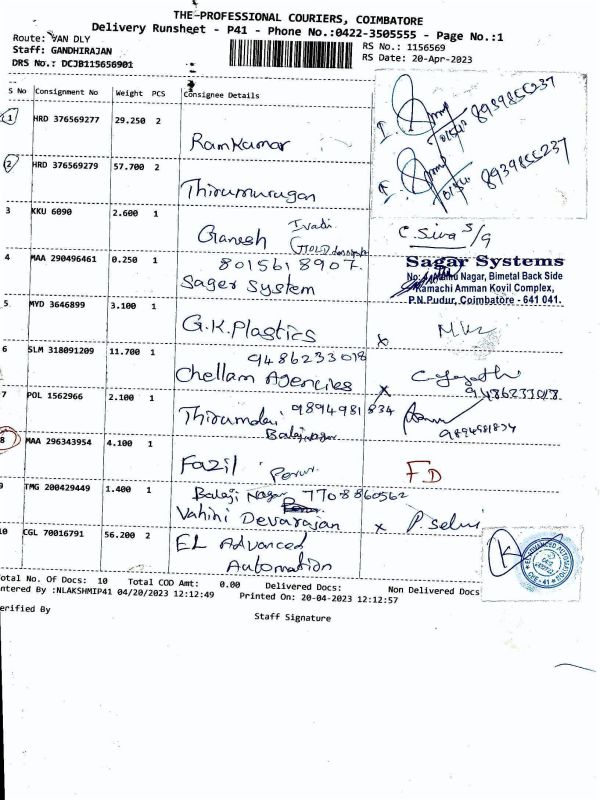 THE PROFESSIONAL COURIERS, COIMBATORE
Delivery Runsheet - P41 - Phone No.:0422-3505555 - Page No.:1
Route: VAN DLY
RS No.: 1156569
Staff: GANDHIRAJAN
RS Date: 20-Apr-2023
DRS No.: DCJB115656901
S No Consignment No Weight PCS Consignee Details
1 HRD 376569277 29.250 2
8939855237
Ramkumar
2 HRD 376569279 57.700 2
8939855237
Thirumurugan
3 KKU 6090 2.600 1
Ganesh
C Siva S/g
4 MAA 290496461 0.250 1
8015618907
Sager System
Sagar Systems
Nagar, Bimetal Back Side
Kamachi Amman Kovil Complex,
P.N.Pudur, Coimbatore - 641 041.
5 MYD 3646899 3.100 1
G.K.Plastics x
6 SLM 318091209 11.700 1
9486233018
Chellam Agencies x
9486233018
7 POL 1562966 2.100 1
Thirumalai 9894981834
Balaji nagar
9894981834
8 MAA 296343954 4.100 1
Fazil
FD
9 TMG 200429449 1.400 1
Balaji Nagar 7708860562
Vahini Devarajan x P selvi
10 CGL 70016791 56.200 2
EL Advanced
Automation
Total No. Of Docs: 10 Total COD Amt: 0.00 Delivered Docs Non Delivered Docs
ntered By :NLAKSHMIP41 04/20/2023 12:12:49 Printed On: 20-04-2023 12:12:57
erified By
Staff Signature